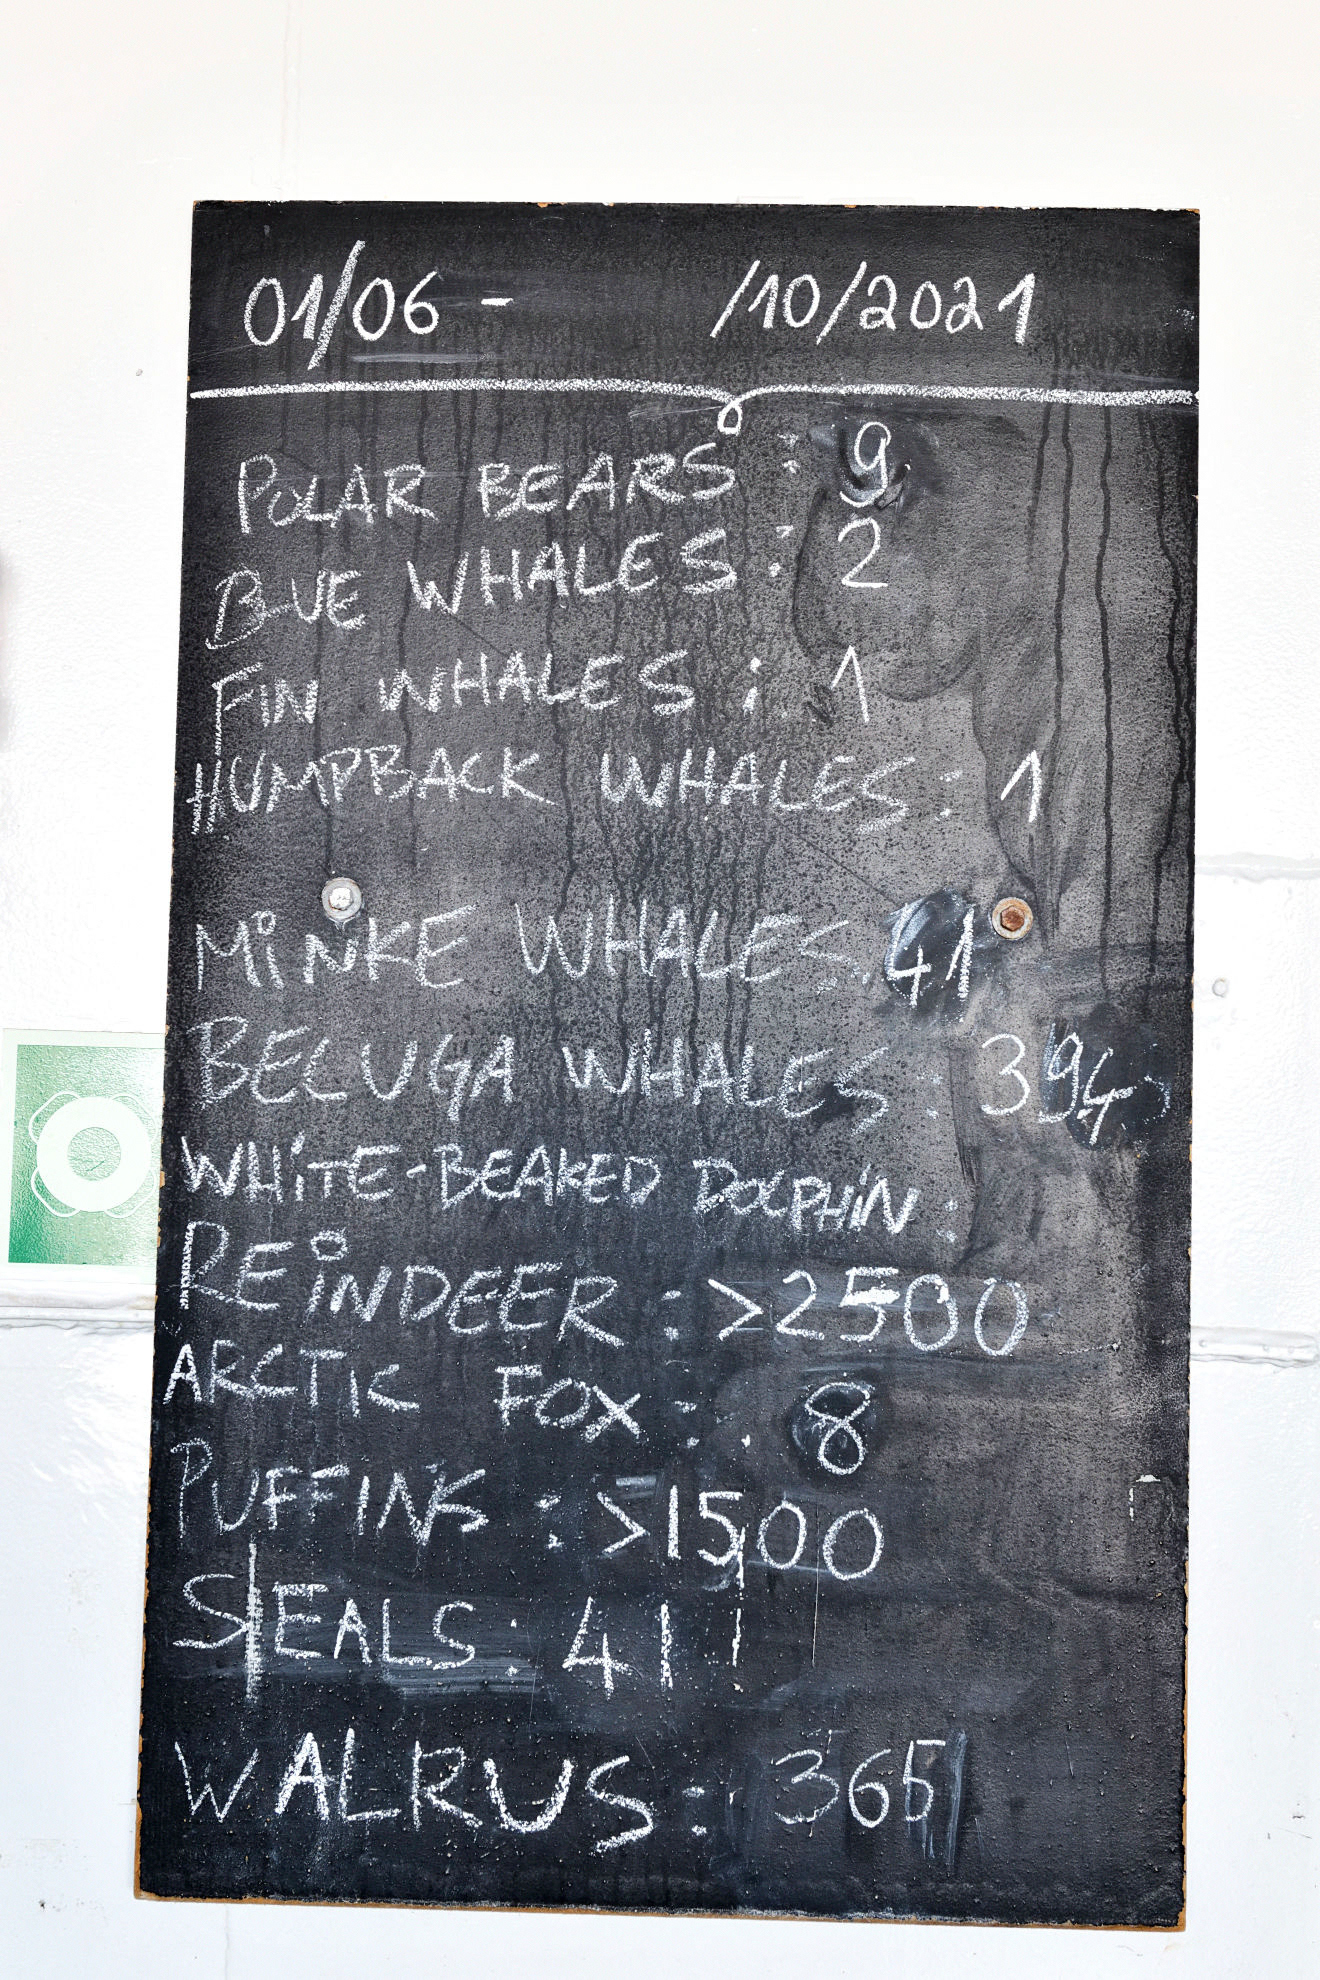 01/06 - /10/2021
POLAR BEARS : 9
BLUE WHALES : 2
FIN WHALES : 1
HUMPBACK WHALES : 1
MiNKE WHALES : 41
BELUGA WHALES : 394
WHiTE-BEAKED DOLPHiN :
REiNDEER : >2500
ARCTIC FOX : 8
PUFFINS : >1500
SEALS : 411
WALRUS : 365